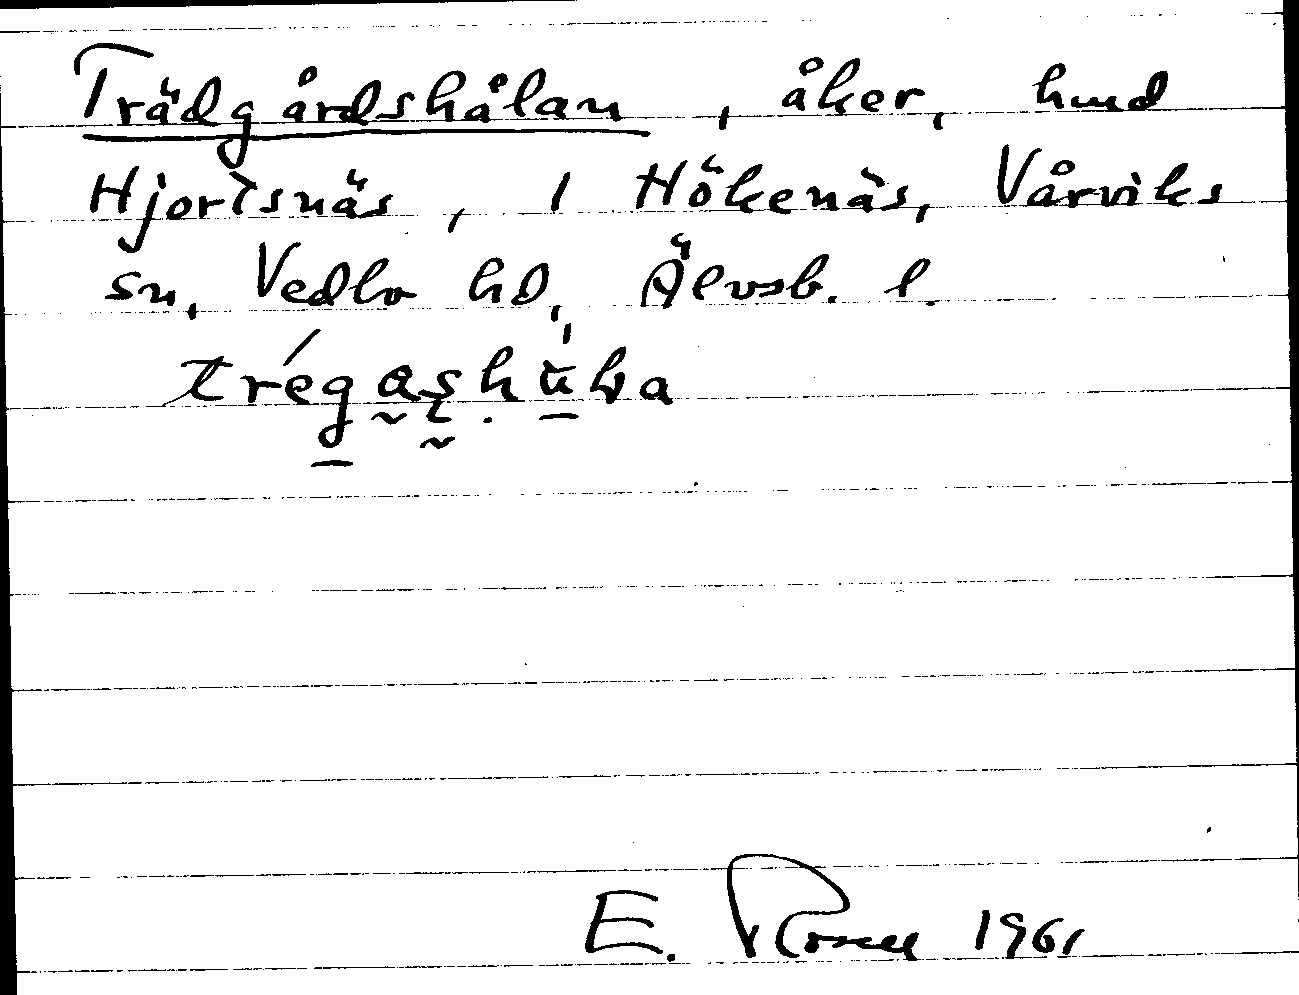 Trädgårdshålan, åker, hmd
Hjortsnäs, 1 Hökenäs, Vårviks
sn, Vedbo hd, Älvsb. l.
E. Rosell 1961